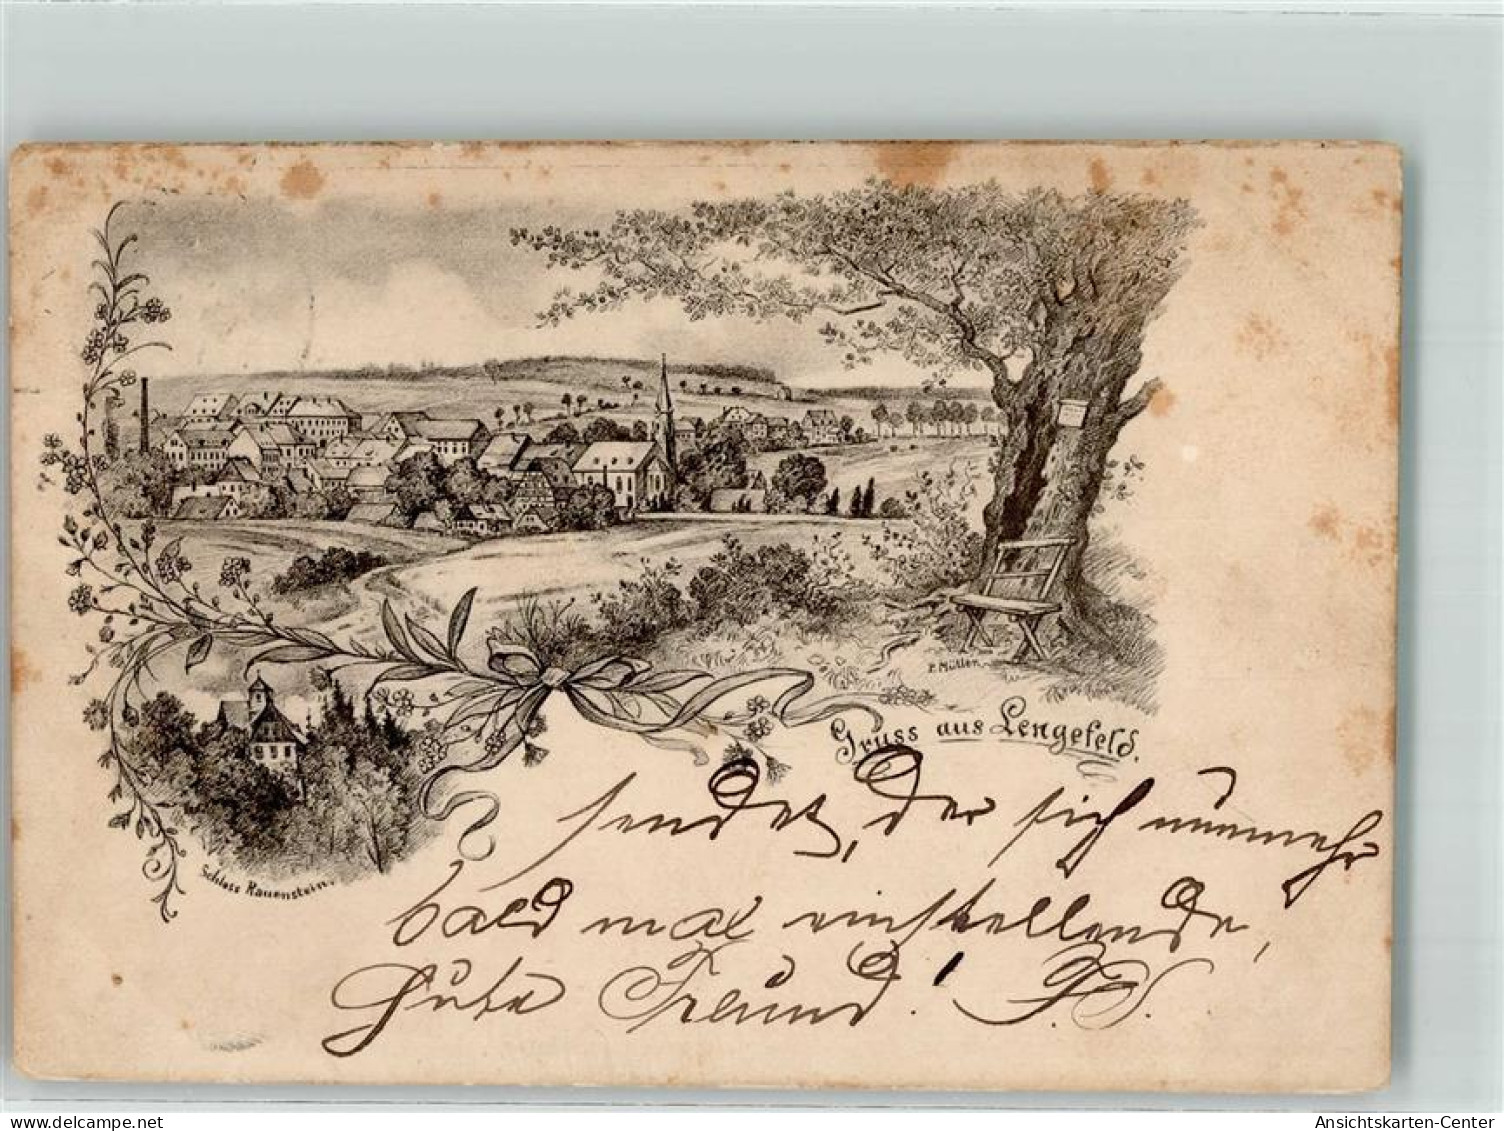 P. Müller.
Gruss aus Lengefeld.
Schloss Rauenstein.
sendet, der sich nunmehr
bald mal einstellende,
Gute Freund!
delcampe.net
Ansichtskarten-Center